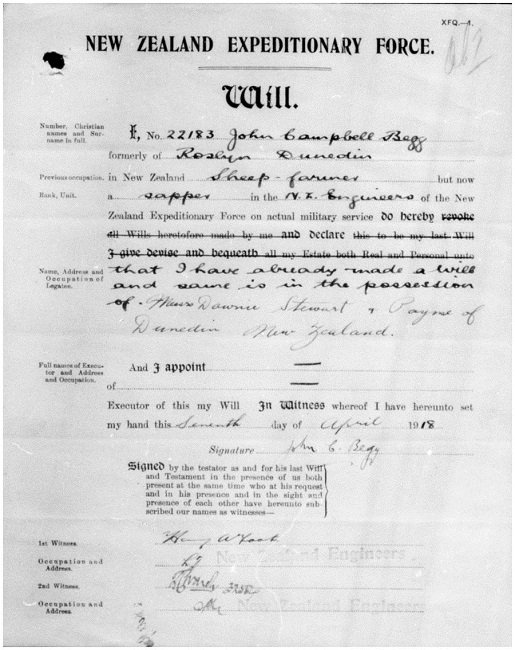 XFQ.—4.
NEW ZEALAND EXPEDITIONARY FORCE.
Will.
Number, Christian names and Surname in full.
I, No. 22183 John Campbell Begg
formerly of Roslyn Dunedin
Previous occupation. in New Zealand Sheep-farmer but now
Rank, Unit. a sapper in the N.Z. Engineers of the New
Zealand Expeditionary Force on actual military service do hereby revoke
all Wills heretofore made by me and declare this to be my last Will
I give devise and bequeath all my Estate both Real and Personal unto
Name, Address and Occupation of Legatee.
that I have already made a will
and same is in the possession
of Messrs Downie Stewart & Payne of
Dunedin New Zealand.
Full names of Executor and Address and Occupation.
And I appoint —
of —
Executor of this my Will In Witness whereof I have hereunto set
my hand this Seventh day of April 1918
Signature John C. Begg
Signed by the testator as and for his last Will
and Testament in the presence of us both
present at the same time who at his request
and in his presence and in the sight and
presence of each other have hereunto subscribed our names as witnesses—
1st Witness.
Occupation and Address. New Zealand Engineers
2nd Witness.
Occupation and Address. New Zealand Engineers